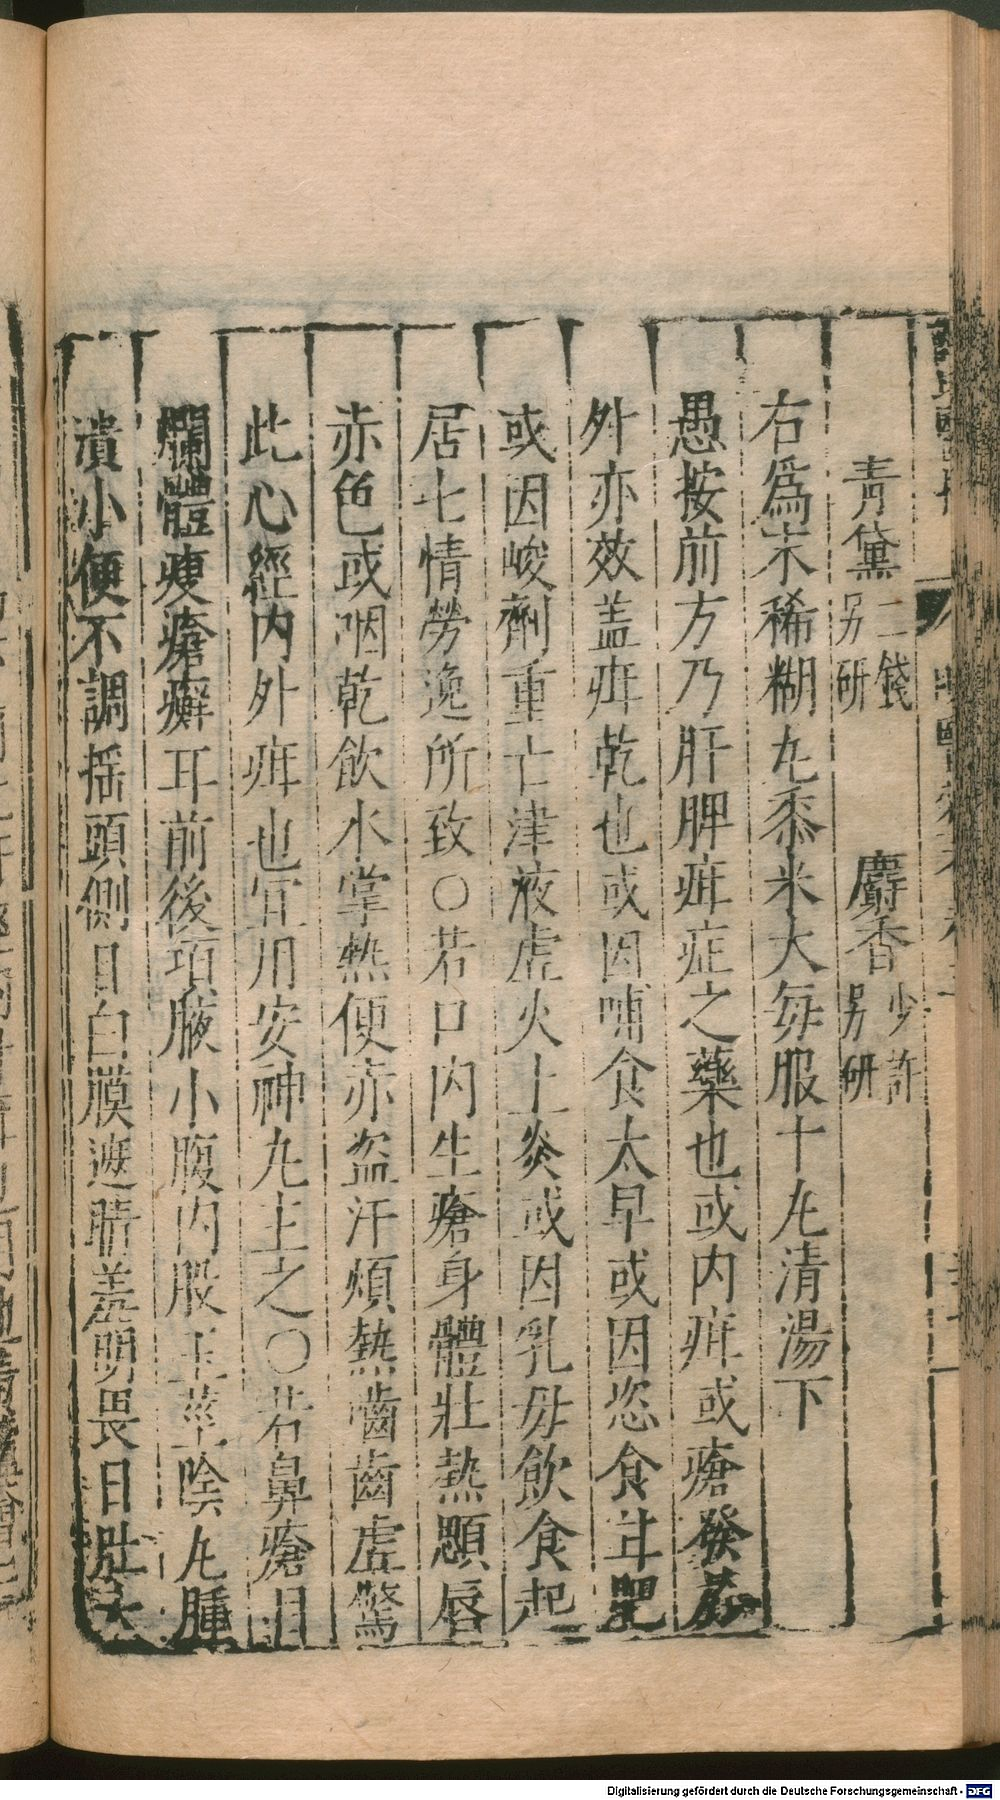 青黛二錢另研　麝香少許另研
右爲末稀糊丸黍米大每服十丸清湯下
愚按前方乃肝脾疳症之藥也或内疳或瘡發於
外亦效盖疳乾也或因哺食太早或因恣食甘肥
或因峻劑重亡津液虛火上炎或因乳母飲食起
居七情勞逸所致○若口内生瘡身體壯熱顋唇
赤色或咽乾飲水掌熱便赤盗汗煩熱嚙齒虛驚
此心經内外疳也宜用安神丸主之○若鼻瘡目
爛體瘦瘡癬耳前後項腋小腹内股玉莖陰丸腫
潰小便不調揺頭側目白膜遮睛羞明畏日肚大
Digitalisierung gefördert durch die Deutsche Forschungsgemeinschaft - DFG